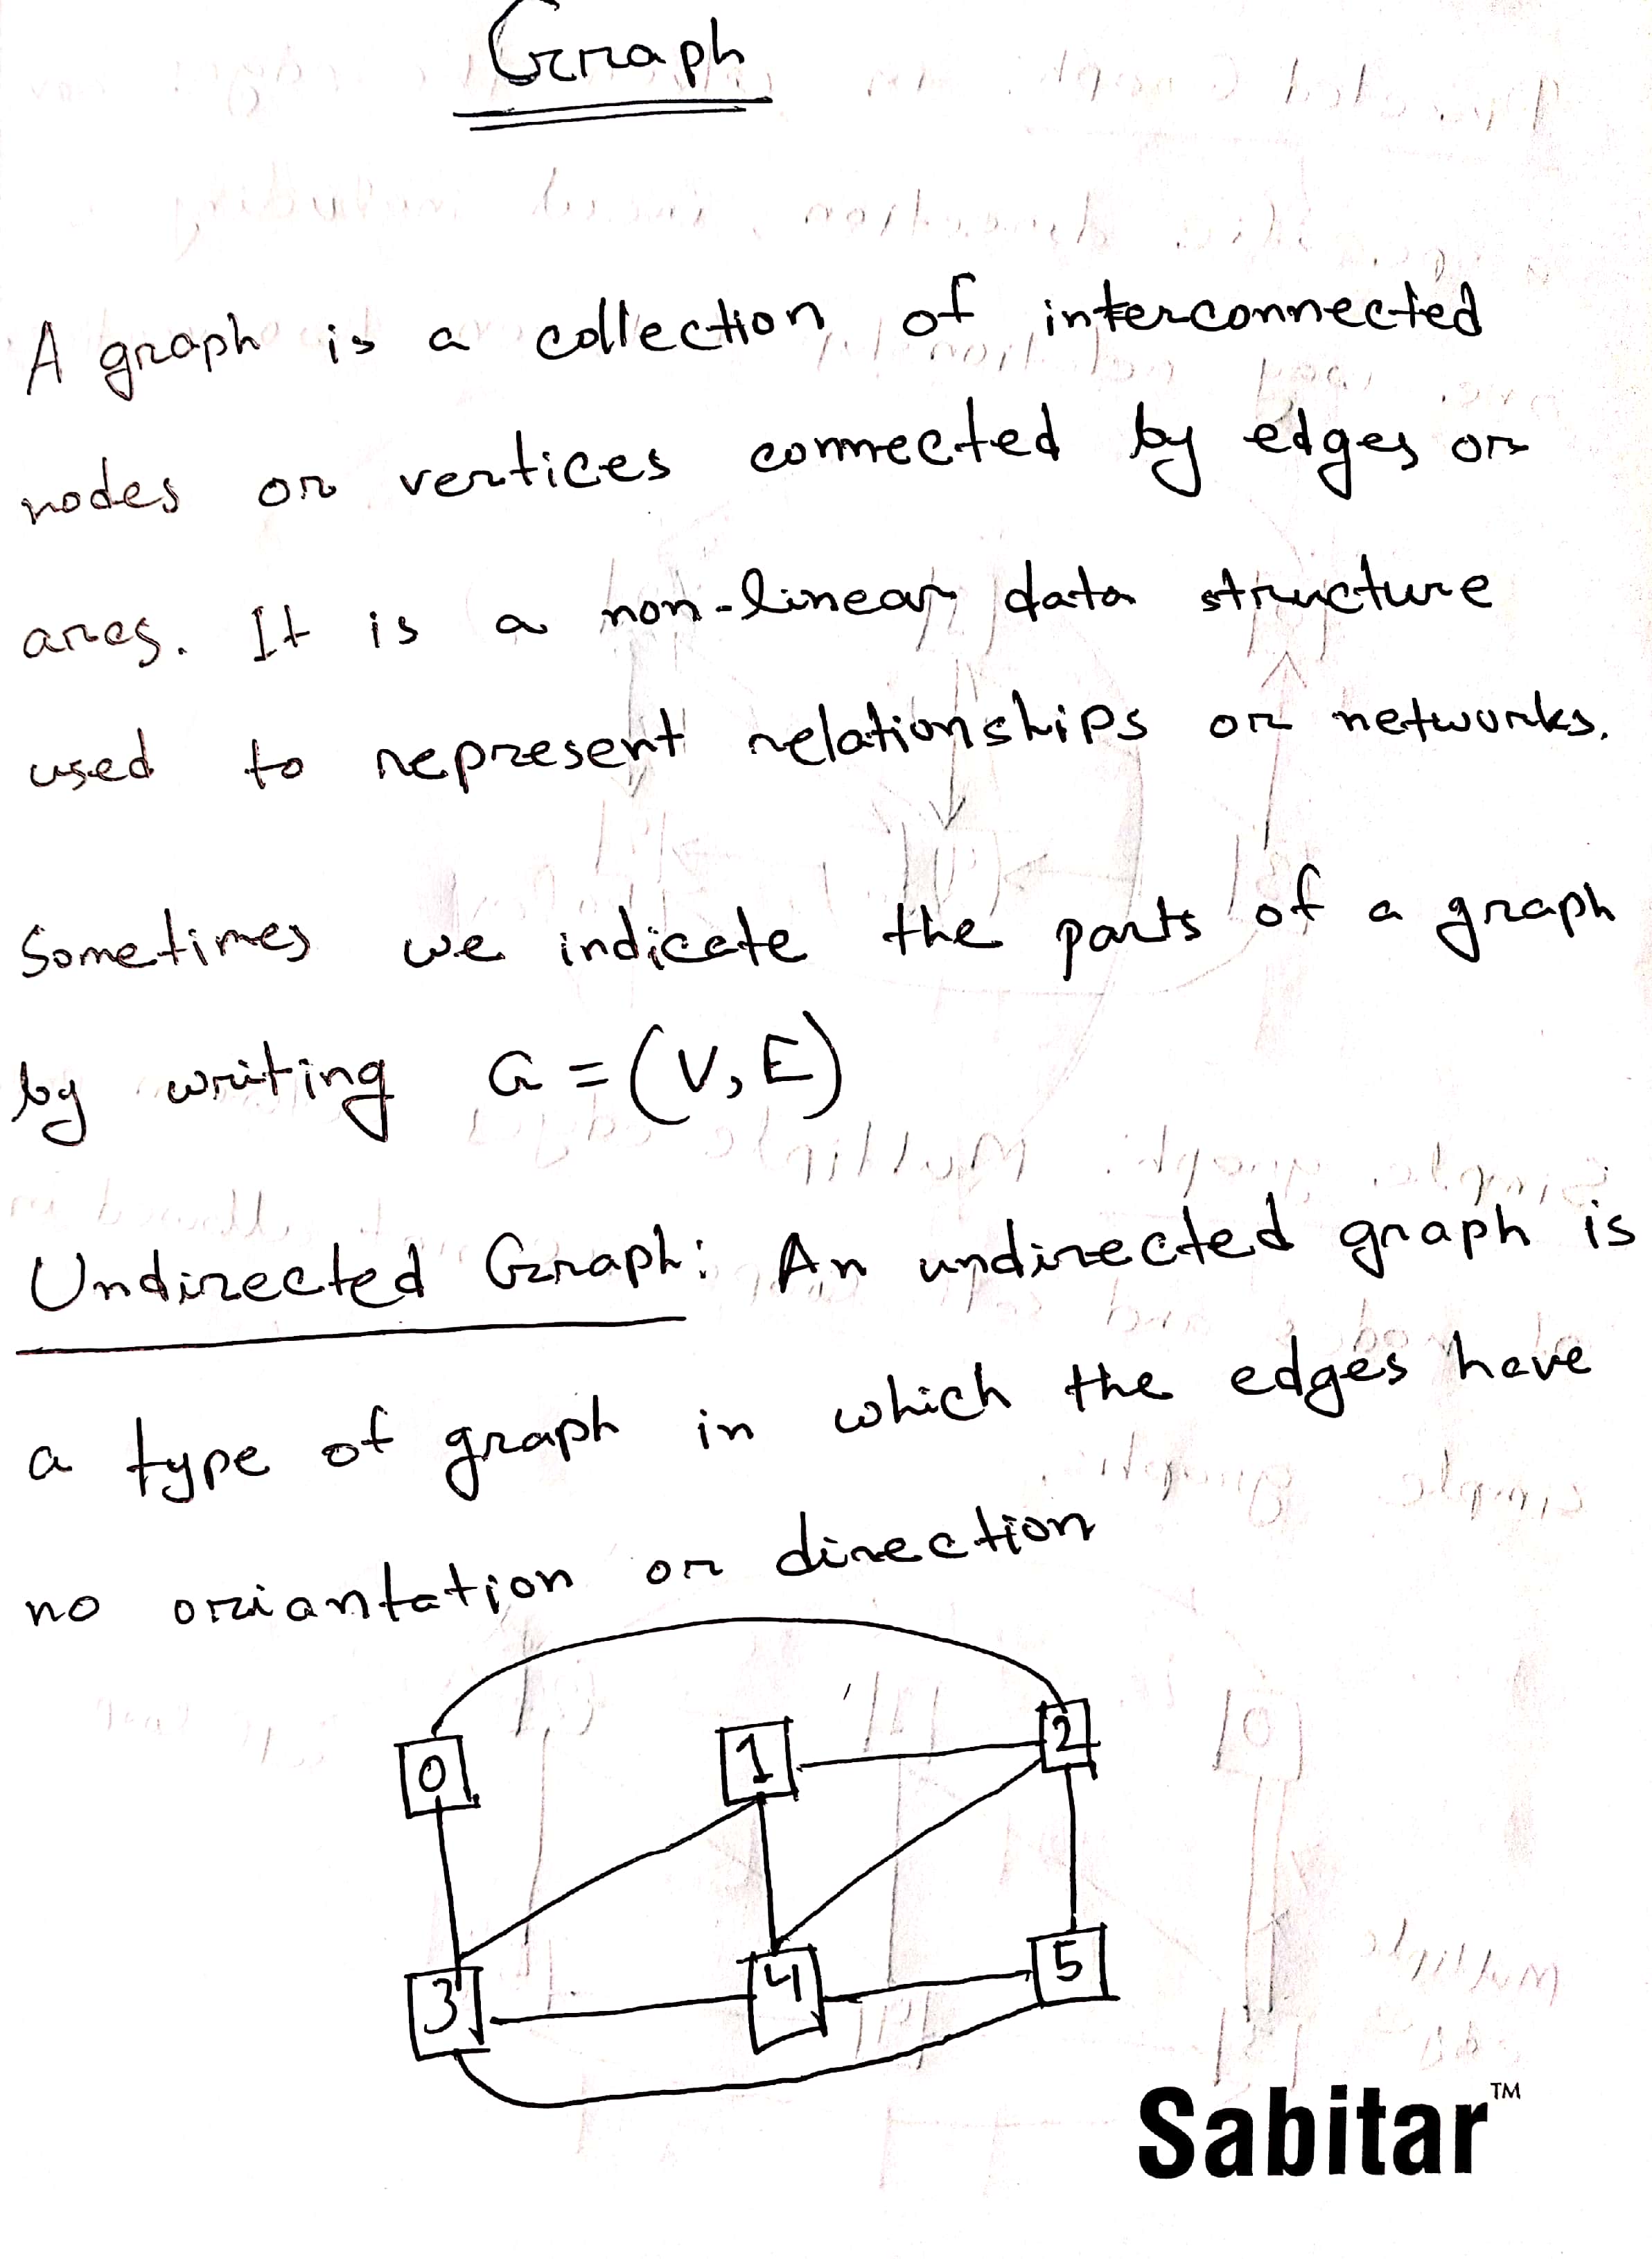 Graph
A graph is a collection of interconnected
nodes or vertices connected by edges or
arcs. It is a non-linear data structure
used to represent relationships or networks.
Sometimes we indicate the parts of a graph
by writing G = (V, E)
Undirected Graph: An undirected graph is
a type of graph in which the edges have
no oriantation or direction
0 1 2
3 4 5
Sabitar™